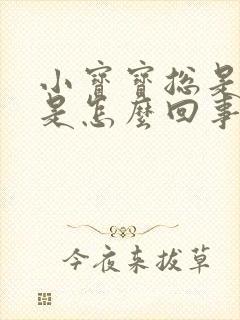 小寶寶總是
是怎麼回事
今夜來拔草